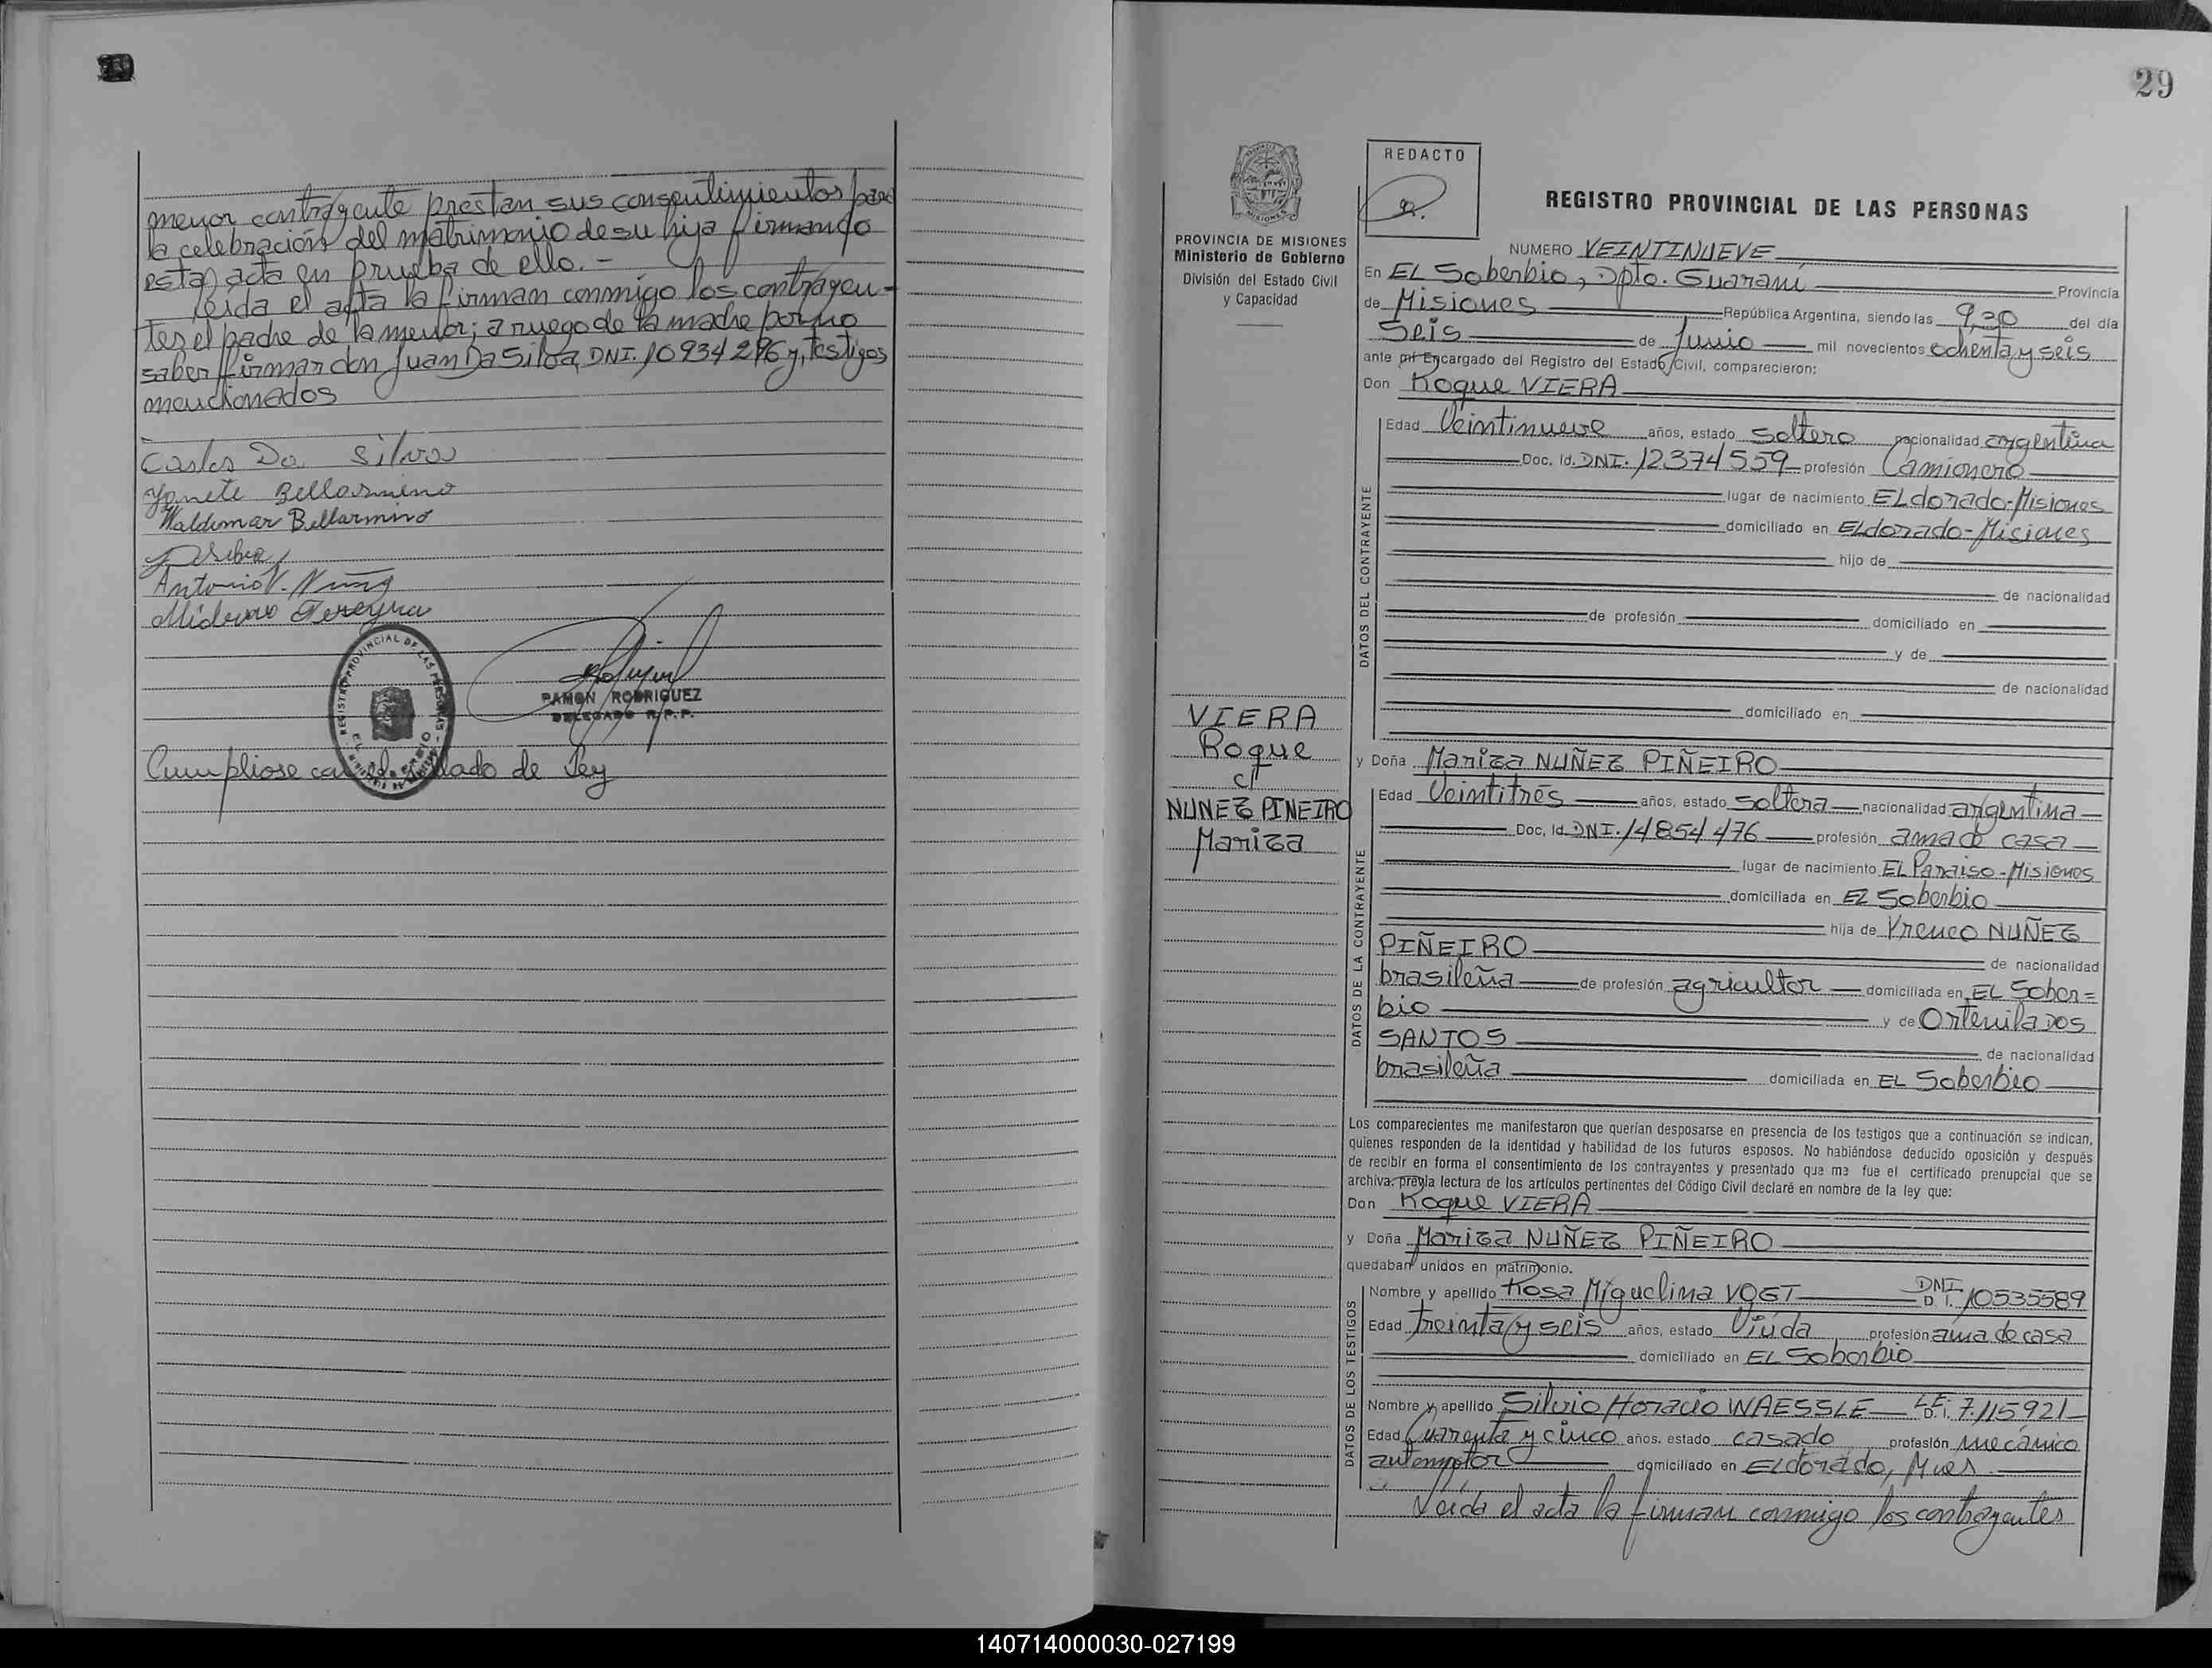 menor contrayente prestan sus consentimientos para
la celebración del matrimonio de su hija firmando
esta acta en prueba de ello.-
Leida el acta la firman conmigo los contrayen-
tes el padre de la menor; a ruego de la madre por no
saber firmar don Juan Da Silva, DNI. 10934296 y, testigos
mencionados
Carlos Da Silva
Yanete Bellarmino
Waldemar Bellarmino
Antonio V.
REGISTRO PROVINCIAL DE LAS PERSONAS
RAMON RODRIGUEZ
DELEGADO R.P.P.
Cumpliose con el sellado de Ley
29
REDACTO
PROVINCIA DE MISIONES
Ministerio de Gobierno
División del Estado Civil
y Capacidad
REGISTRO PROVINCIAL DE LAS PERSONAS
NUMERO VEINTINUEVE
En EL Soberbio, Dpto. Guaraní Provincia
de Misiones República Argentina, siendo las 9,30 del día
Seis de Junio mil novecientos ochenta y seis
ante mí Encargado del Registro del Estado Civil, comparecieron:
Don Roque VIERA
DATOS DEL CONTRAYENTE
Edad Veintinueve años, estado soltero nacionalidad argentina
Doc. Id. DNI. 12374559 profesión Camionero
lugar de nacimiento ELdorado-Misiones
domiciliado en ELdorado-Misiones
hijo de
de nacionalidad
de profesión domiciliado en
y de
de nacionalidad
domiciliado en
VIERA
Roque
c/
NUNEZ PINEIRO
Mariza
y Doña Mariza NUÑEZ PIÑEIRO
DATOS DE LA CONTRAYENTE
Edad Veintitrés años, estado soltera nacionalidad argentina
Doc. Id. DNI. 14854476 profesión ama de casa
lugar de nacimiento EL Paraiso-Misiones
domiciliada en EL Soberbio
hija de Yreneo NUÑEZ
PIÑEIRO
de nacionalidad
brasileña de profesión agricultor domiciliada en EL Sober=
bio y de Ortenila DOS
SANTOS
de nacionalidad
brasileña domiciliada en EL Soberbio
Los comparecientes me manifestaron que querían desposarse en presencia de los testigos que a continuación se indican,
quienes responden de la identidad y habilidad de los futuros esposos. No habiéndose deducido oposición y después
de recibir en forma el consentimiento de los contrayentes y presentado que me fue el certificado prenupcial que se
archiva, previa lectura de los artículos pertinentes del Código Civil declaré en nombre de la ley que:
Don Roque VIERA
y Doña Mariza NUÑEZ PIÑEIRO
quedaban unidos en matrimonio.
DATOS DE LOS TESTIGOS
Nombre y apellido Rosa Miguelina VOGT DNI D. I. 10535589
Edad treinta y seis años, estado Viuda profesión ama de casa
domiciliado en EL Soberbio
Nombre y apellido Silvio Horacio WAESSLE L.E. D. I. 7.115921
Edad Cuarenta y cinco años, estado casado profesión mecánico
automotor domiciliado en ELdorado, Mnes
Leida el acta la firman conmigo los contrayentes
140714000030-027199